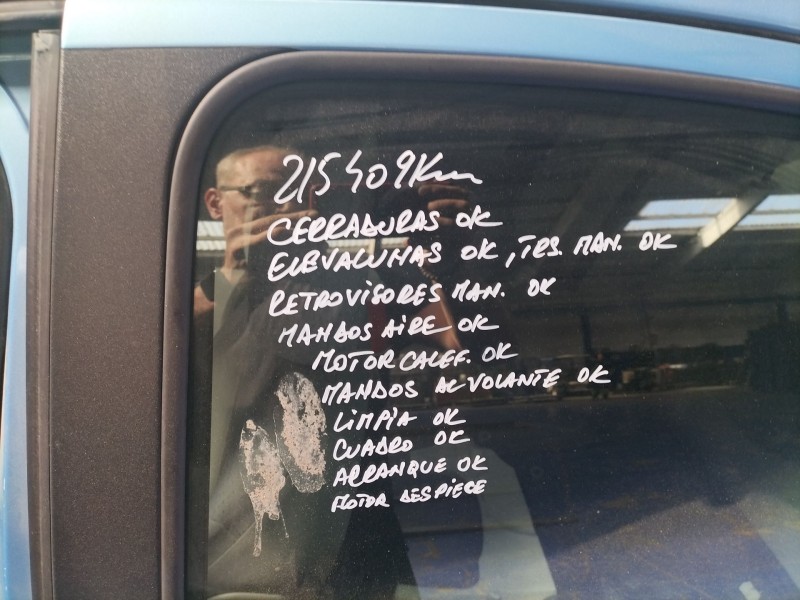 215409Km
CERRADURAS OK
ELEVALUNAS OK, TRS. MAN. OK
RETROVISORES MAN. OK
MANDOS AIRE OK
MOTOR CALEF. OK
MANDOS AL VOLANTE OK
LIMPIA OK
CUADRO OK
ARRANQUE OK
MOTOR DESPIECE